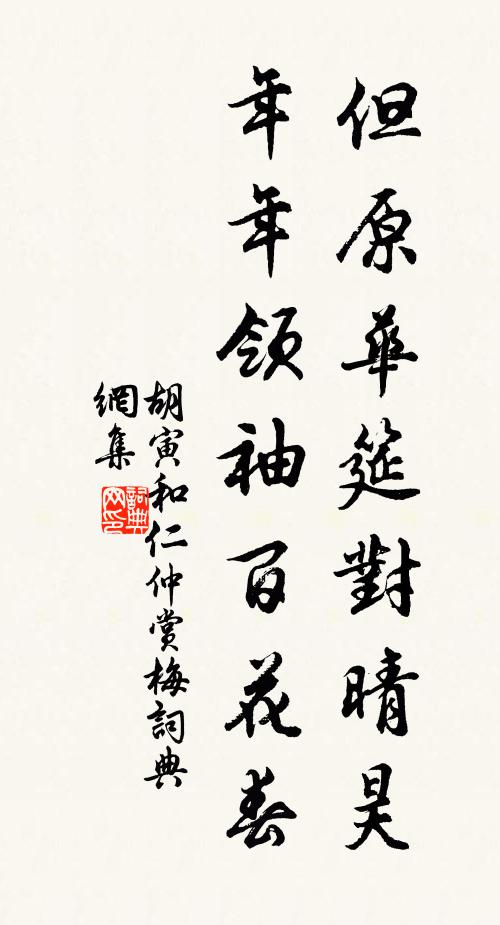 但原華筵對晴昊
年年領袖百花春
胡寅和仁仲賞梅詞典
網集
詞典网印